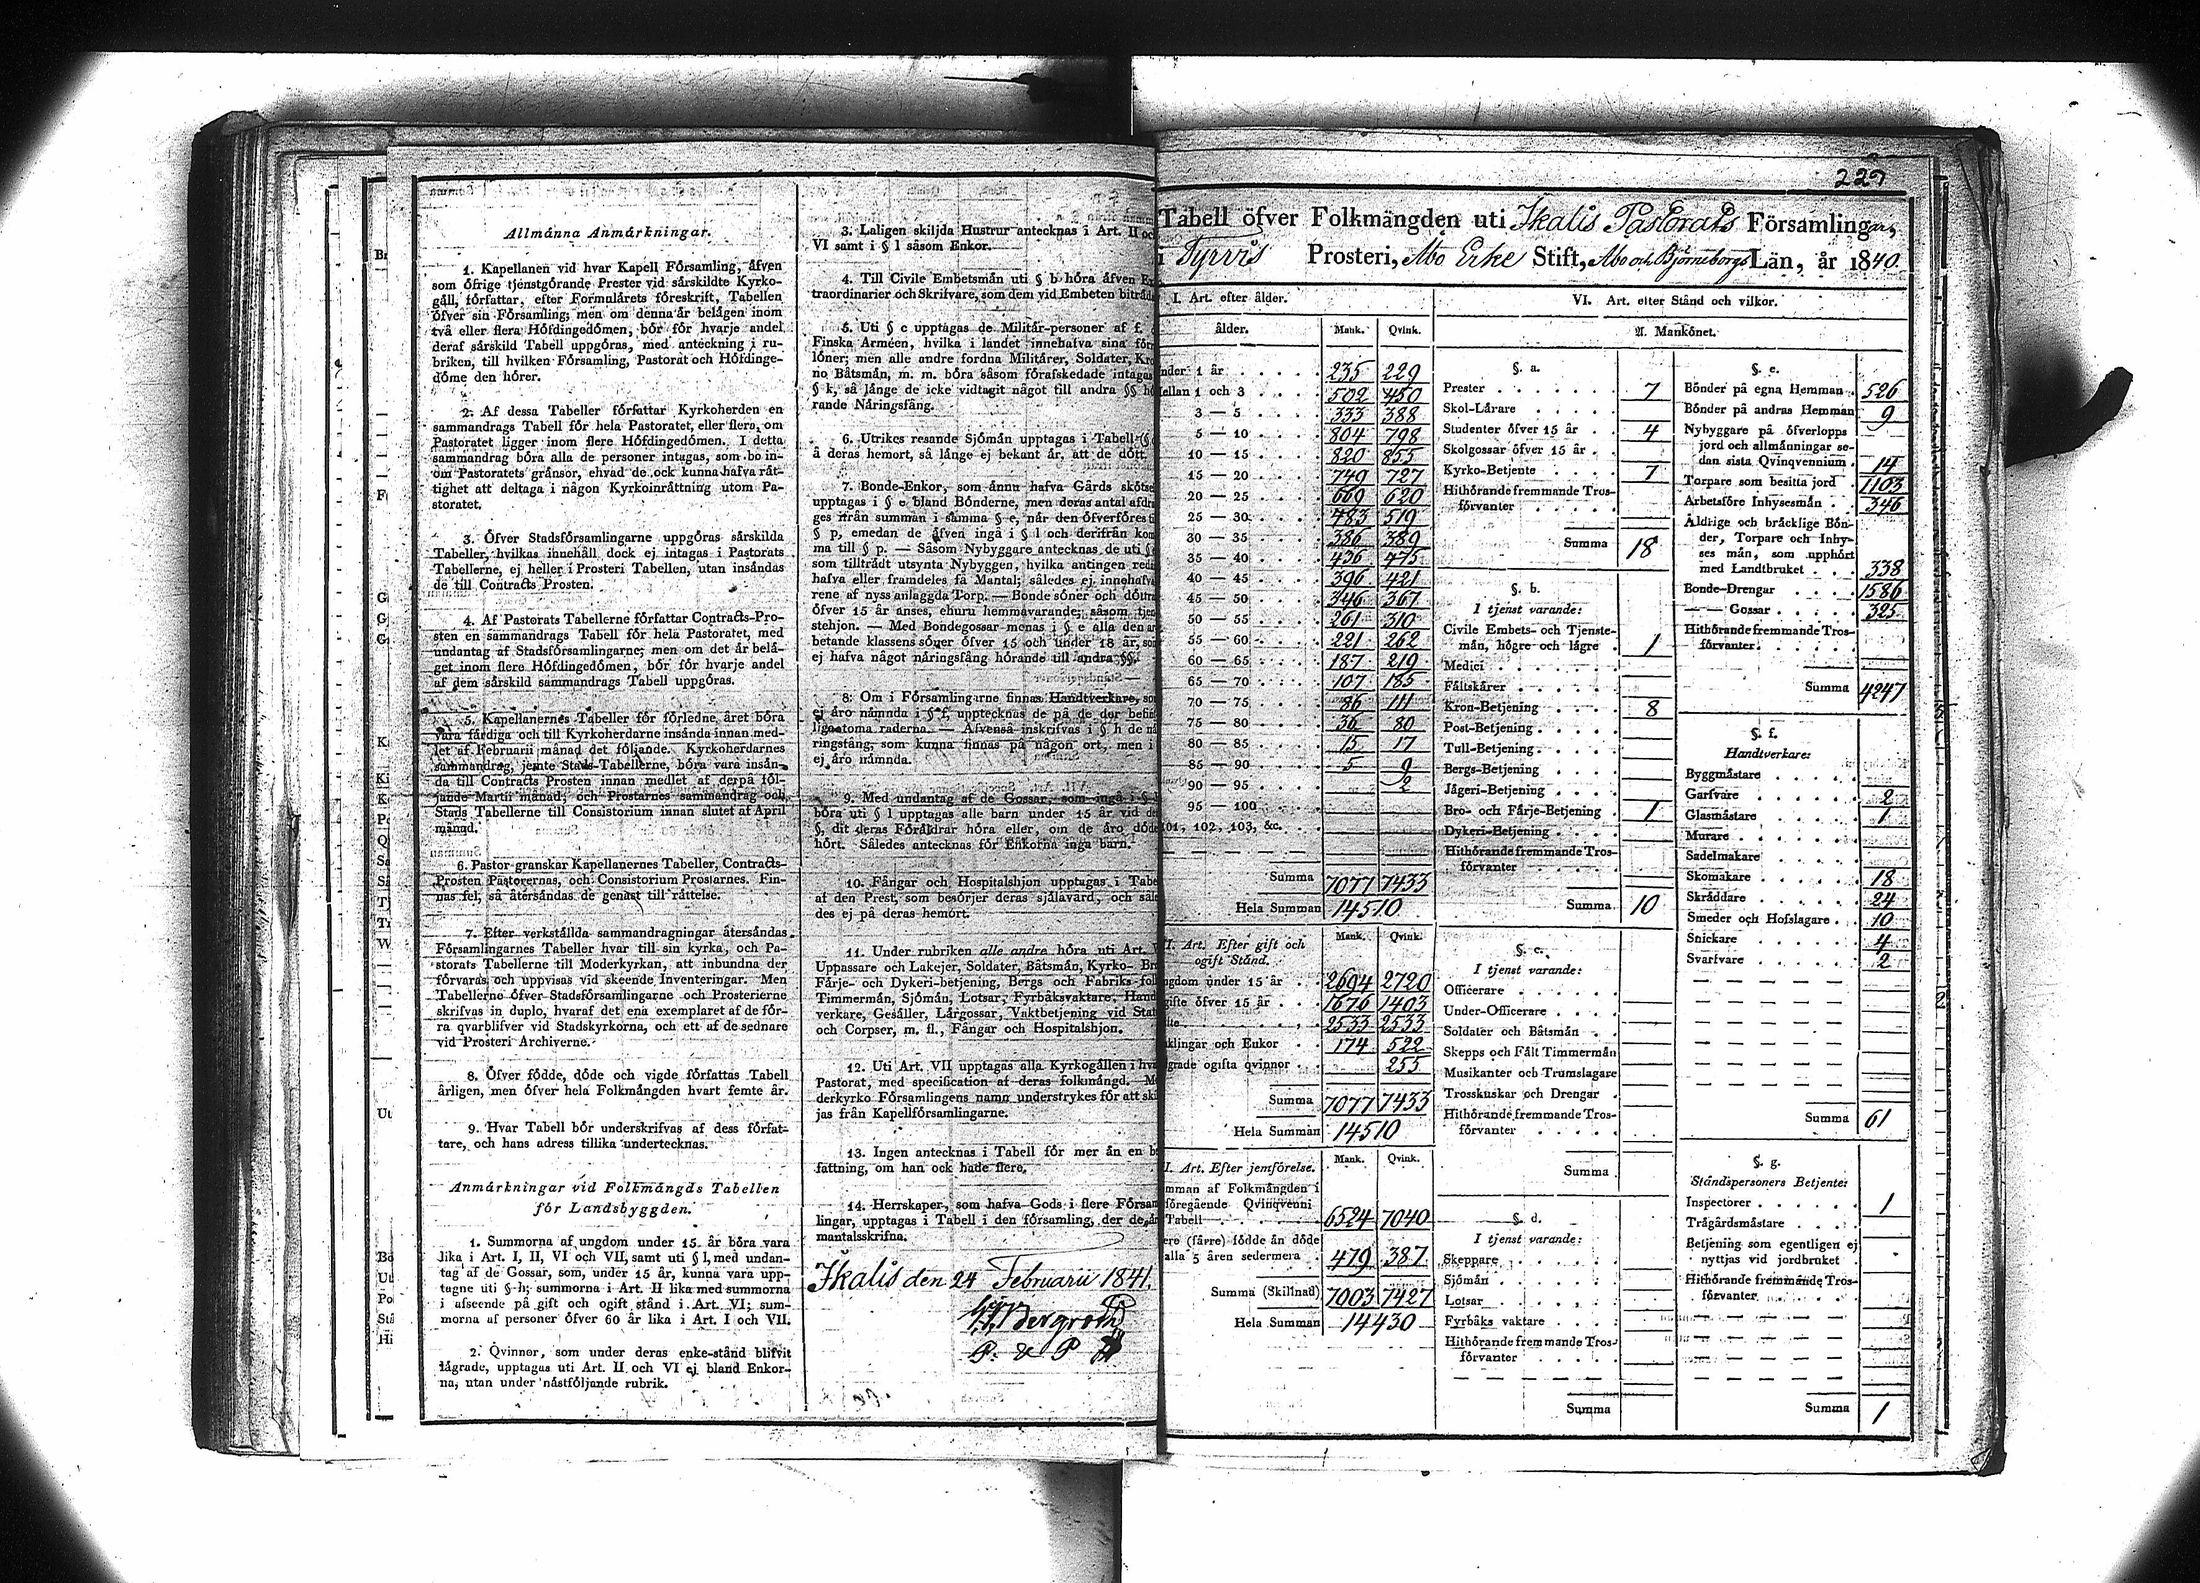 Allmänna Anmärkningar.
1. Kapellanen vid hvar Kapell Församling, äfven
som öfrige tjenstgörande Prester vid särskildte Kyrko-
gäll, författar, efter Formulärets föreskrift, Tabellen
öfver sin Församling; men om denna är belägen inom
två eller flera Höfdingedömen, bör för hvarje andel
deraf särskild Tabell uppgöras, med anteckning i ru-
briken, till hvilken Församling, Pastorat och Höfdinge-
döme den hörer.
2. Af dessa Tabeller författar Kyrkoherden en
sammandrags Tabell för hela Pastoratet, eller flera, om
Pastoratet ligger inom flere Höfdingedömen. I detta
sammandrag böra alla de personer intagas, som bo in-
om Pastoratets gränsor, ehvad de ock kunna hafva rät-
tighet att deltaga i någon Kyrkoinrättning utom Pa-
storatet.
3. Öfver Stadsförsamlingarne uppgöras särskilda
Tabeller, hvilkas innehåll dock ej intagas i Pastorats
Tabellerne, ej heller i Prosteri Tabellen, utan insändas
de till Contracts Prosten.
4. Af Pastorats Tabellerne författar Contracts-Pro-
sten en sammandrags Tabell för hela Pastoratet, med
undantag af Stadsförsamlingarne; men om det är belä-
get inom flere Höfdingedömen, bör för hvarje andel
af dem särskild sammandrags Tabell uppgöras.
5. Kapellanernes Tabeller för förledne året böra
vara färdiga och till Kyrkoherdarne insända innan med-
let af Februarii månad det följande. Kyrkoherdarnes
sammandrag, jemte Stads-Tabellerne, böra vara insän-
da till Contracts Prosten innan medlet af derpå föl-
jande Martii månad; och Prostarnes sammandrag och
Stads Tabellerne till Consistorium innan slutet af April
månad.
6. Pastor granskar Kapellanernes Tabeller, Contracts-
Prosten Pastorernas, och Consistorium Prostarnes. Fin-
nas fel, så återsändas de genast till rättelse.
7. Efter verkställda sammandragningar återsändas
Församlingarnes Tabeller hvar till sin kyrka, och Pa-
storats Tabellerne till Moderkyrkan, att inbundna der
förvaras och uppvisas vid skeende Inventeringar. Men
Tabellerne öfver Stadsförsamlingarne och Prosterierne
skrifvas in duplo, hvaraf det ena exemplaret af de för-
ra qvarblifver vid Stadskyrkorna, och ett af de sednare
vid Prosteri Archiverne.
8. Öfver födde, döde och vigde författas Tabell
årligen, men öfver hela Folkmängden hvart femte år.
9. Hvar Tabell bör underskrifvas af dess förfat-
tare, och hans adress tillika undertecknas.
Anmärkningar vid Folkmängds Tabellen
för Landsbyggden.
1. Summorna af ungdom under 15 år böra vara
lika i Art. I, II, VI och VII, samt uti § l, med undan-
tag af de Gossar, som, under 15 år, kunna vara upp-
tagne uti § h; summorna i Art. II lika med summorna
i afseende på gift och ogift stånd i Art. VI; sum-
morna af personer öfver 60 år lika i Art. I och VII.
2. Qvinnor, som under deras enke-stånd blifvit
lägrade, upptagas uti Art. II och VI ej bland Enkor-
na, utan under nästföljande rubrik.
3. Laligen skiljda Hustrur antecknas i Art. II oc
VI samt i § l såsom Enkor.
4. Till Civile Embetsmän uti § b höra äfven Ex
traordinarier och Skrifvare, som dem vid Embeten biträda
5. Uti § c upptagas de Militär-personer af f. d
Finska Arméen, hvilka i landet innehafva sina för
löner; men alle andre fordna Militärer, Soldater, Kro
no Båtsmän, m. m. böra såsom förafskedade intagas
§ k, så länge de icke vidtagit något till andra §§ hö
rande Näringsfång.
6. Utrikes resande Sjömän upptagas i Tabell (§
å deras hemort, så länge ej bekant är, att de dött.
7. Bonde-Enkor, som ännu hafva Gårds skötse
upptagas i § e bland Bönderne, men deras antal afdra
ges ifrån summan i samma § e, när den öfverföres ti
§ p, emedan de äfven ingå i § l och derifrån kom
ma till § p. — Såsom Nybyggare antecknas de uti §
som tillträdt utsynta Nybyggen, hvilka antingen reda
hafva eller framdeles få Mantal; således ej innehafva
rene af nyss anlaggda Torp. — Bonde söner och döttra
öfver 15 år anses, ehuru hemmavarande, såsom tjen
stehjon. — Med Bondegossar menas i § e alla den ar
betande klassens söner öfver 15 och under 18 år, som
ej hafva något näringsfång hörande till andra §§.
8. Om i Församlingarne finnas Handtverkare, so
ej äro nämnda i § f, upptecknas de på de der befin
liga tomma raderna. — Äfvenså inskrifvas i § h de nä
ringsfång, som kunna finnas på någon ort, men i
ej äro nämnda.
9. Med undantag af de Gossar, som ingå i §
böra uti § l upptagas alle barn under 15 år vid de
§, dit deras Föräldrar höra eller, om de äro döde
hört. Således antecknas för Enkorna inga barn.
10. Fångar och Hospitalshjon upptagas i Tabe
af den Prest, som besörjer deras själavård, och såle
des ej på deras hemort.
11. Under rubriken alle andre höra uti Art. V
Uppassare och Lakejer, Soldater, Båtsmän, Kyrko- Br
Färje- och Dykeri-betjening, Bergs och Fabriks-fol
Timmermän, Sjömän, Lotsar, Fyrbåksvaktare, Hand
verkare, Gesäller, Lärgossar, Vaktbetjening vid Stat
och Corpser, m. fl., Fångar och Hospitalshjon.
12. Uti Art. VII upptagas alla Kyrkogällen i hva
Pastorat, med specification af deras folkmängd. M
derkyrko Församlingens namn understrykes för att ski
jas från Kapellförsamlingarne.
13. Ingen antecknas i Tabell för mer än en b
fattning, om han ock hade flere.
14. Herrskaper, som hafva Gods i flere Försam
lingar, upptagas i Tabell i den församling, der de är
mantalsskrifna.
Ikalis den 24 Februarii 1841.
Bergroth
P. & P
227
Tabell öfver Folkmängden uti Ikalis Pastorats Församlingar,
i Tyrvis Prosteri, Åbo Erke Stift, Åbo och Björneborgs Län, år 1840.
I. Art. efter ålder.
ålder. Mank. Qvink.
nder 1 år 235 229
ellan 1 och 3 502 450
3 — 5 333 388
5 — 10 804 798
10 — 15 820 855
15 — 20 749 727
20 — 25 669 620
25 — 30 483 519
30 — 35 386 389
35 — 40 436 475
40 — 45 396 421
45 — 50 346 367
50 — 55 261 310
55 — 60 221 262
60 — 65 187 219
65 — 70 107 185
70 — 75 86 111
75 — 80 36 80
80 — 85 15 17
85 — 90 5 9
90 — 95 2
95 — 100
101, 102, 103, &c.
Summa 7077 7433
Hela Summan 14510
I. Art. Efter gift och Mank. Qvink.
ogift Stånd.
ngdom under 15 år 2694 2720
gifte öfver 15 år 1676 1403
fte 2533 2533
nklingar och Enkor 174 522
grade ogifta qvinnor 255
Summa 7077 7433
Hela Summan 14510
I. Art. Efter jemförelse. Mank. Qvink.
mman af Folkmängden i
föregående Qvinqvenni
Tabell 6524 7040
ere (färre) födde än döde
alla 5 åren sedermera 479 387
Summa (Skillnad) 7003 7427
Hela Summan 14430
VI. Art. efter Stånd och vilkor.
A. Mankönet.
§. a.
Prester 7
Skol-Lärare
Studenter öfver 15 år 4
Skolgossar öfver 15 år
Kyrko-Betjente 7
Hithörande fremmande Tros-
förvanter
Summa 18
§. b.
I tjenst varande:
Civile Embets- och Tjenste-
män, högre och lägre 1
Medici
Fältskärer
Kron-Betjening 8
Post-Betjening
Tull-Betjening
Bergs-Betjening
Jägeri-Betjening
Bro- och Färje-Betjening 1
Dykeri-Betjening
Hithörande fremmande Tros-
förvanter
Summa 10
§. c.
I tjenst varande:
Officerare
Under-Officerare
Soldater och Båtsmän
Skepps och Fält Timmermän
Musikanter och Trumslagare
Trosskuskar och Drengar
Hithörande fremmande Tros-
förvanter
Summa
§. d.
I tjenst varande:
Skeppare
Sjömän
Lotsar
Fyrbåks vaktare
Hithörande fremmande Tros-
förvanter
Summa
§. e.
Bönder på egna Hemman 526
Bönder på andras Hemman 9
Nybyggare på öfverlopps
jord och allmänningar se-
dan sista Qvinqvennium 14
Torpare som besitta jord 1103
Arbetsföre Inhysesmän 346
Åldrige och bräcklige Bön-
der, Torpare och Inhy-
ses män, som upphört
med Landtbruket 338
Bonde-Drengar 1586
— — Gossar 325
Hithörande fremmande Tros-
förvanter
Summa 4247
§. f.
Handtverkare:
Byggmästare
Garfvare 2
Glasmästare 1
Murare
Sadelmakare
Skomakare 18
Skräddare 24
Smeder och Hofslagare 10
Snickare 4
Svarfvare 2
Summa 61
§. g.
Ståndspersoners Betjente:
Inspectorer 1
Trägårdsmästare
Betjening som egentligen ej
nyttjas vid jordbruket
Hithörande fremmande Tros-
förvanter
Summa 1